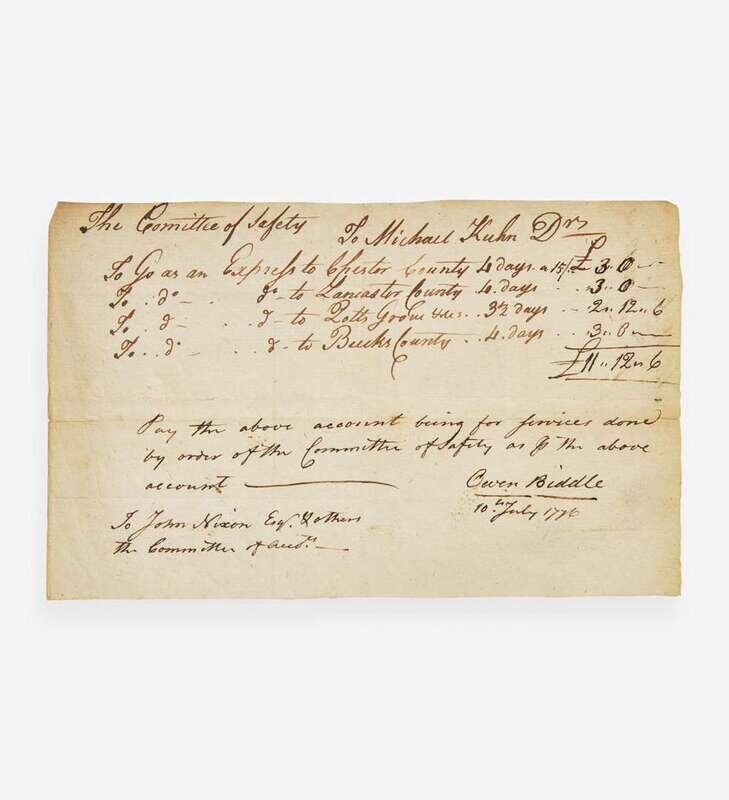 The Comittee of Safety To Michael Kuhn Drs
£
To Go as an Express to Chester County 4 days a 15/ 3 „ 0 —
To .. do — do to Lancaster County 4 days .. 3 „ 0 —
To .. do — .. do to Potts Grove &c .. 3½ days .. 2 „ 12 „ 6
To .. do — .. do to Bucks County .. 4 days .. 3 „ 0 —
£11 „ 12 „ 6
Pay the above account being for services done
by order of the Committee of Safety as ⅌ the above
account —
Owen Biddle
10th July 1776
To John Nixon Esqr. & others
the Committee of Accts. —